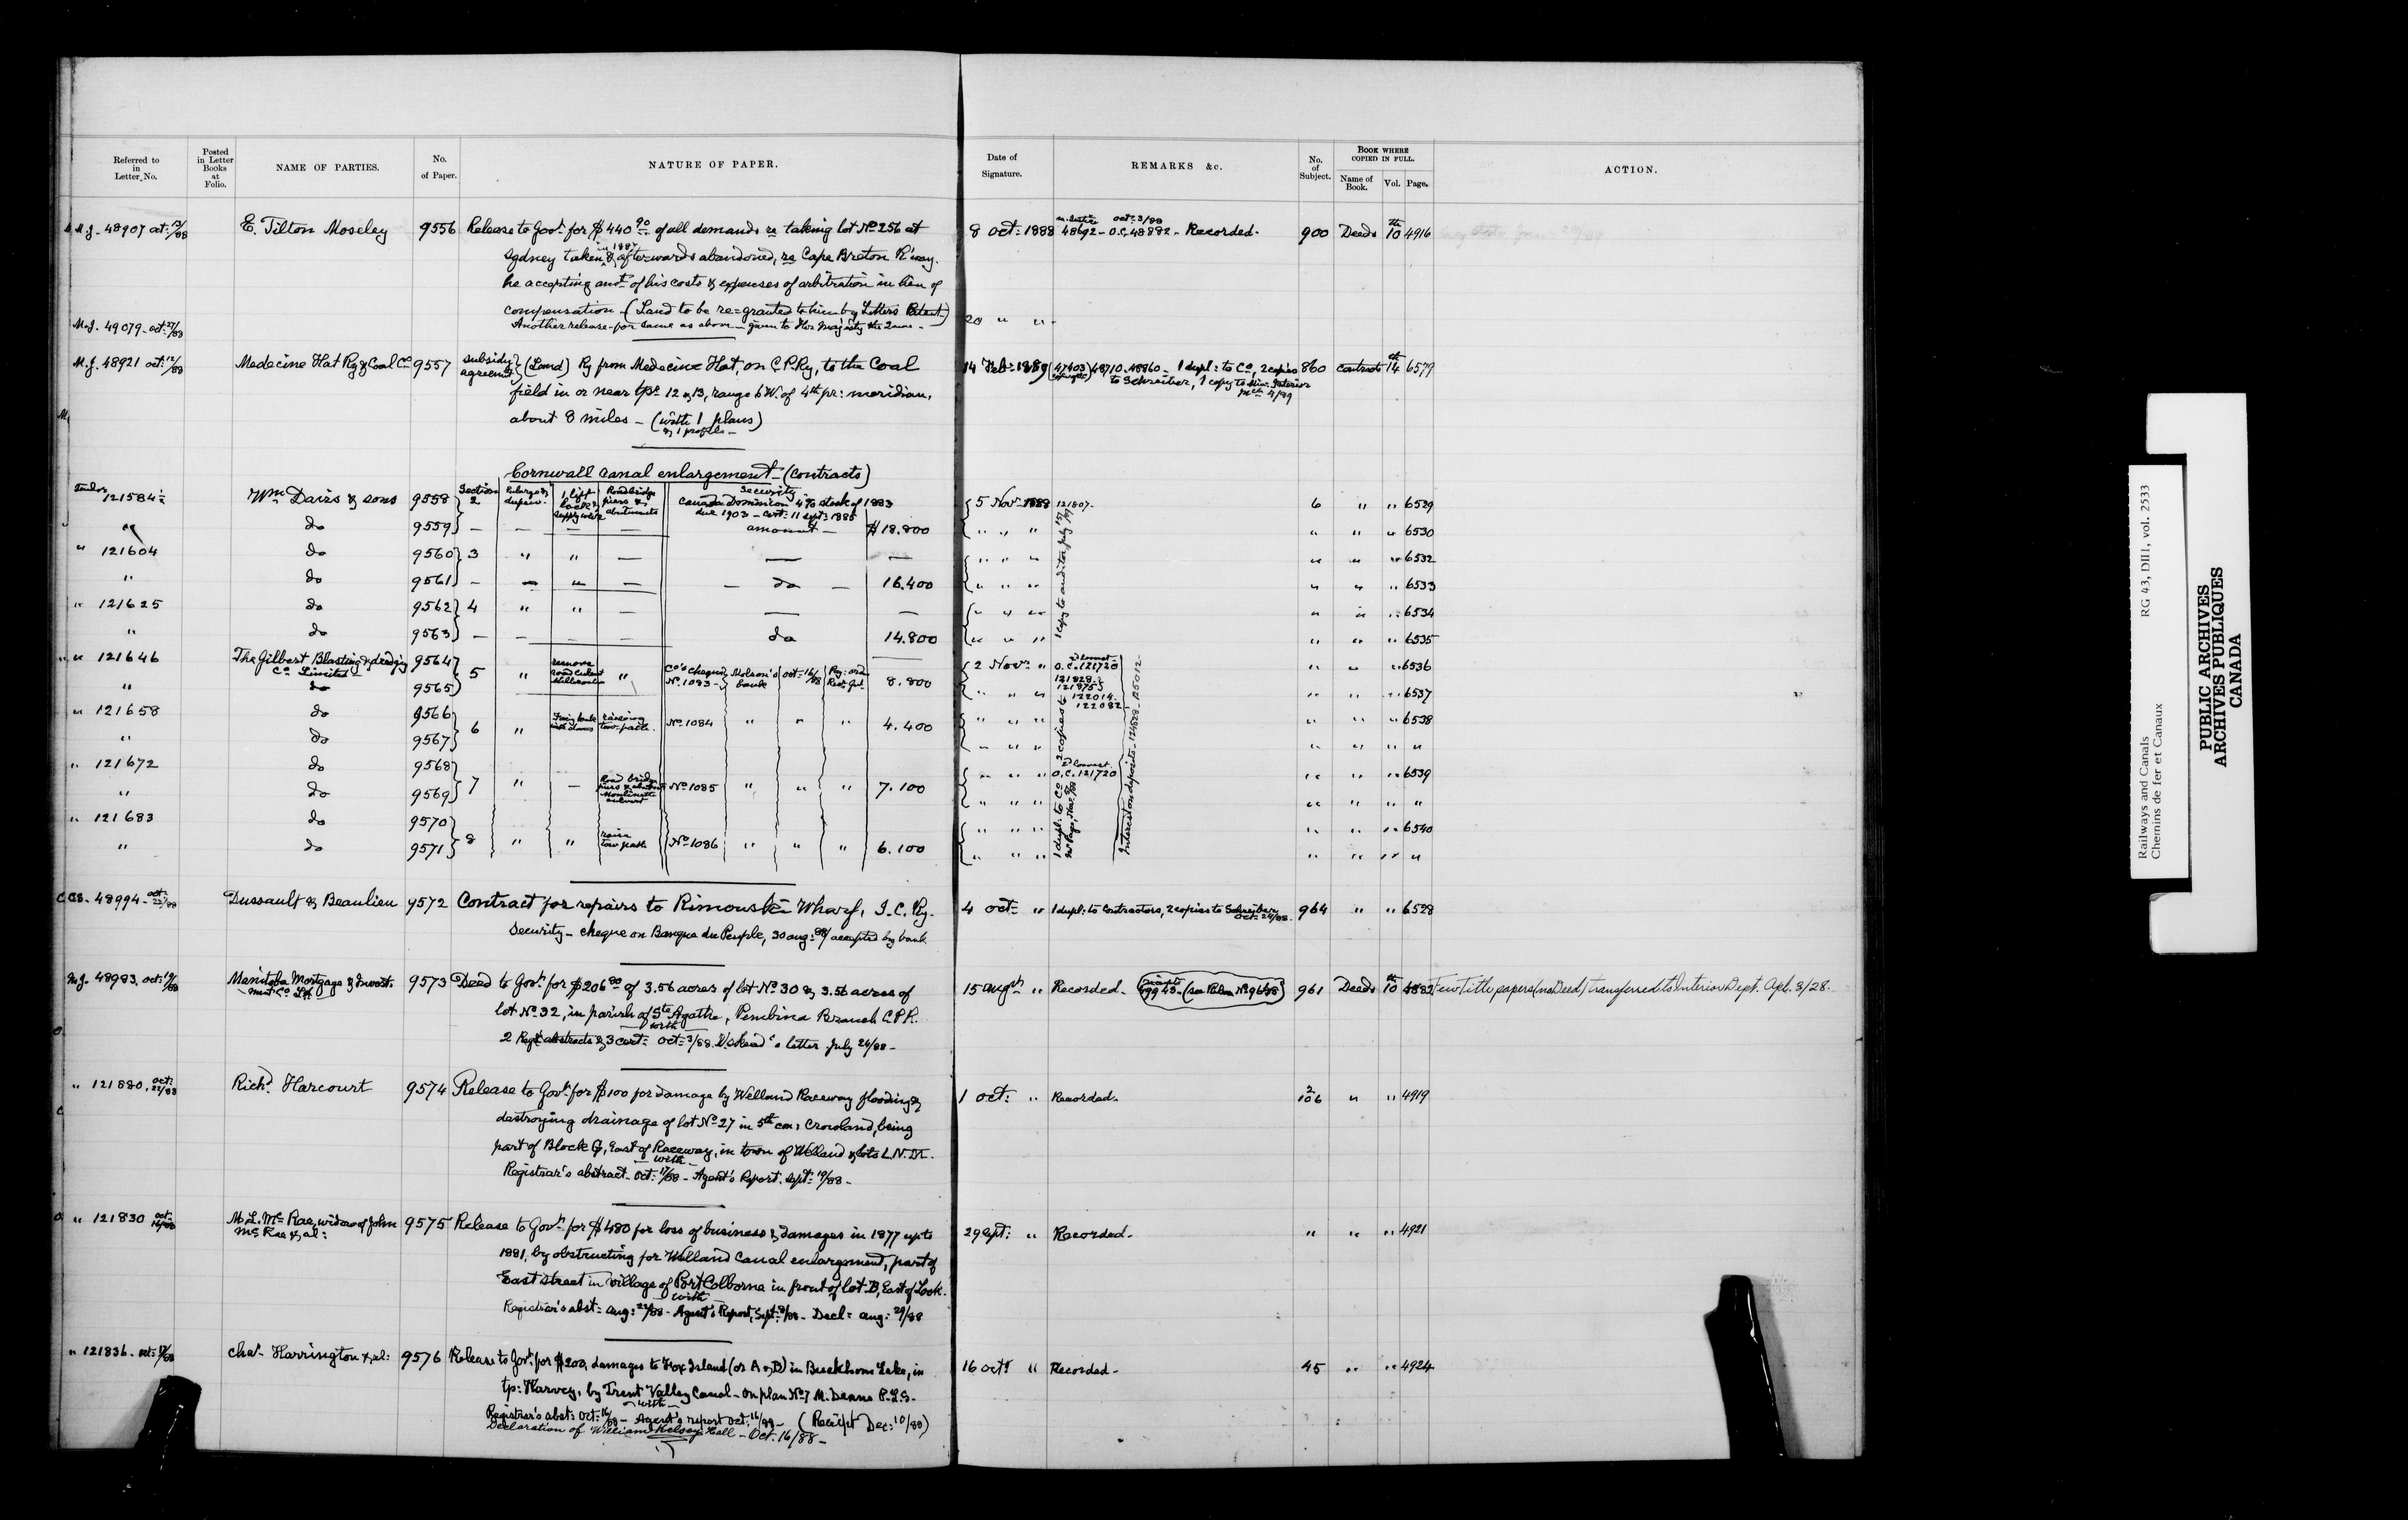 Referred to in Letter No.
Posted in Letter Books at Folio.
NAME OF PARTIES.
No. of Paper.
NATURE OF PAPER.
Date of Signature.
REMARKS &c.
No. of Subject.
BOOK WHERE COPIED IN FULL.
Name of Book.
Vol.
Page.
ACTION.
M.J. 48907 oct: 12/88 E. Tilton Moseley 9556 Release to Govt for $440 90 of all demands re taking lot No 256 at 8 oct: 1888 48692 - O.C. 48882 - Recorded. 900 Deeds 10 4916
oct: 3/88
Sydney taken in 1887 & afterwards abandoned, re Cape Breton R'way.
he accepting amt of his costs & expenses of arbitration in lieu of
compensation - (Land to be re=granted to him by Letters Patent)
M.J. 49079 - oct: 27/88 Another release for same as above - given to Her Majesty the Queen - 20 " "
M.J. 48921 oct: 12/88 Medecine Hat Ry & Coal Co 9557 subsidy agreemt (Land) Ry from Medecine Hat, on C.P.Ry, to the Coal 14 Feb: 1889 (47403) 48710. 48860 - 1 dupl: to Co, 2 copies 860 Contracts 14 6579
to Schreiber, 1 copy to Min: Interior
field in or near tps 12 & 13, range 6 W. of 4th pr: meridian,
about 8 miles - (with 1 plans)
& 1 profile -
Cornwall Canal enlargement - (Contracts)
121584 1/2 Wm Davis & sons 9558 Section 2 Enlarge & deepen. 1 lift lock & supply weir Roadbridge piers & abutments Security Canada Dominion 4% stock of 1883 5 Nov 1888 121807. 6 " " 6529
due 1903 - cert: 11 sept: 1885
" do 9559 - - - - amount - $18.800 " " " " " " 6530
" 121604 do 9560 3 " " - - - " " " " " " 6532
" do 9561 - - " - - do - 16.400 " " " " " " 6533
" 121625 do 9562 4 " " - - - " " " " " " 6534
" do 9563 - - - - do 14.800 " " " " " " 6535
1 copy to auditor, July
" " 121646 The Gilbert Blasting & dredging Co Limited 9564 5 " remove road culvert " Co's cheque No 1083 - Molson's bank oct: 16/88 8.800 2 Nov: " O.C. 121720 " " " 6536
" do 9565 " " " 121828. 121875 " " " 6537
122014.
122082
" 121658 do 9566 6 " tow-path. No 1084 " " " 4.400 " " " " " " 6538
" do 9567 " " " " " " "
" 121672 do 9568 7 " - Road bridge piers & abutmts culvert No 1085 " " " 7.100 " " " O.C. 121720 " " " 6539
" do 9569 " " " " " " "
" 121683 do 9570 8 " " raise tow path No 1086 " " " 6.100 " " " " " " 6540
" do 9571 " " " " " " "
Interest on deposits - 124628 - 125012 -
C.C.S. 48994 - oct: 22/88 Dussault & Beaulieu 9572 Contract for repairs to Rimouski Wharf, I.C. Ry. 4 oct: " 1 dupl: to Contractors, 2 copies to Schreiber, oct: 24/88. 964 " " 6528
Security - cheque on Banque du Peuple, 30 aug: 88/ accepted by bank
M.J. 48983. oct: 19/88 Manitoba Mortgage & Investment Co Ld 9573 Deed to Govt for $206 80 of 3.56 acres of lot No 30 & 3.56 acres of 15 augst " Recorded. 961 Deeds 10 4882 Few Title papers (no Deed) transferred to Interior Dept. Apl. 3/28.
lot No 32, in parish of Ste Agathe, Pembina Branch C.P.R.
with
2 Regr abstracts & 3 cert: oct: 3/88. letter July 26/88 -
" 121880. oct: 22/88 Richd Harcourt 9574 Release to Govt for $100 for damage by Welland Raceway flooding & 1 oct: " Recorded. 2/106 " " 4919
destroying drainage of lot No 27 in 5th con: Crowland, being
part of Block G, East of Raceway, in town of Welland & lots L.N.M.
with
Registrar's abstract - oct: 17/88 - Agent's Report. sept: 19/88 -
" 121830 oct: 16/88 M.L. Mc Rae, widow of John Mc Rae & al: 9575 Release to Govt for $480 for loss of business & damages in 1877 up to 29 Sept: " Recorded. " " " 4921
1881, by obstructing for Welland Canal enlargement, part of
East street in village of Port Colborne in front of lot B, East of Lock.
with
Registrar's abst: aug: 22/88 - Agent's Report, Sept: 8/88 - Decl: aug: 29/88
" 121836 - oct: 17/88 Chas Harrington & al: 9576 Release to Govt for $200, damages to Fox Island (or A & B) in Buckhorn Lake, in 16 octr " Recorded - 45 " " 4924
tp: Harvey, by Trent Valley Canal - on plan No 7 M. Deane P.L.S.
with
Registrar's abst: Oct: 16/88 - Agent's report oct: 16/88 - (Receipt Dec: 10/88)
Declaration of William Kelsey Hall - Oct. 16/88 -
Railways and Canals RG 43, DIII, vol. 2533
Chemins de fer et Canaux
PUBLIC ARCHIVES
ARCHIVES PUBLIQUES
CANADA